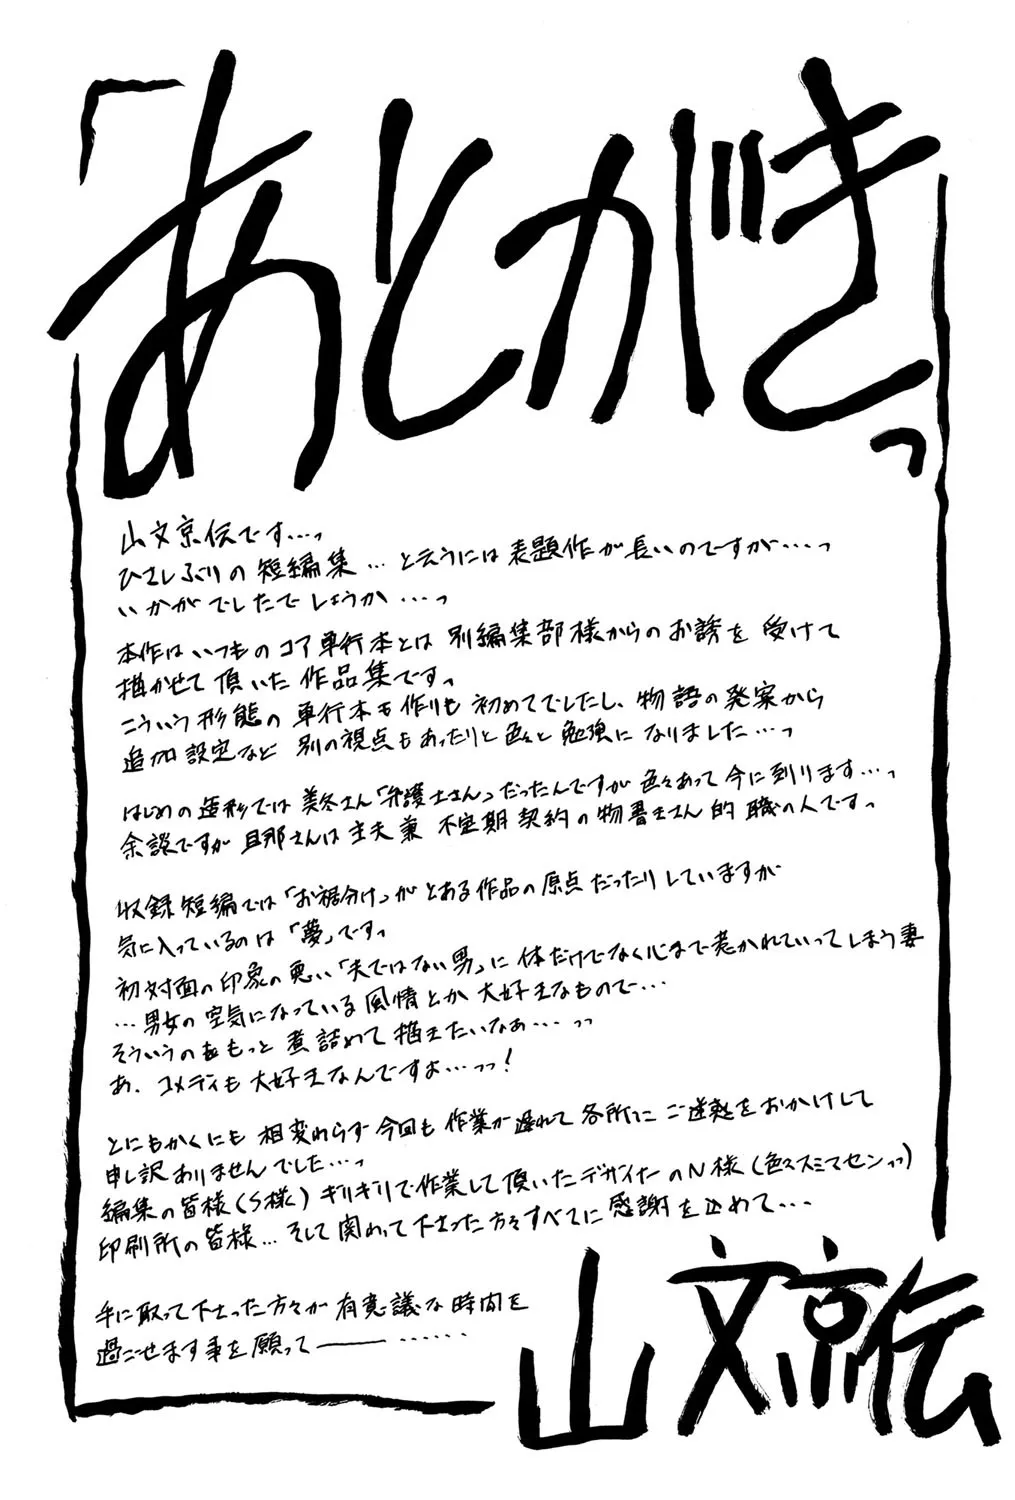 「あとがきっ
山文京伝です…っ
ひさしぶりの短編集…と云うには表題作が長いのですが…っ
いかがでしたでしょうか…っ
本作はいつものコア単行本とは別編集部様からのお誘を受けて
描かせて頂いた作品集ですっ
こういう形態の単行本も作りも初めてでしたし、物語の発案から
追加設定など別の視点もあったりと色々と勉強になりました…っ
はじめの造形では美冬さん「弁護士さん」だったんですが色々あって今に到ります…っ
余談ですが旦那さんは主夫兼不定期契約の物書きさん的職の人ですっ
収録短編では「お裾分け」がとある作品の原点だったりしていますが
気に入っているのは「夢」ですっ
初対面の印象の悪い「夫ではない男」に体だけでなく心まで惹かれていってしまう妻
…男女の空気になっている風情とか大好きなもので…
そういうのをもっと煮詰めて描きたいなぁ…っっ
あ、コメディも大好きなんですよ…っっ!
とにもかくにも相変わらず今回も作業が遅れて各所にご迷惑をおかけして
申し訳ありませんでした…っ
編集の皆様(S様)ギリギリで作業して頂いたデザイナーのN様(色々スミマセンっっ)
印刷所の皆様…そして関わって下さった方々すべてに感謝を込めて…
手に取って下さった方々が有意義な時間を
過ごせます事を願って――……
山文京伝